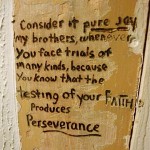 Consider it pure Joy
my brothers, whenever
you face trials of
many kinds, because
you know that the
testing of your FAITH
Produces
Perseverance